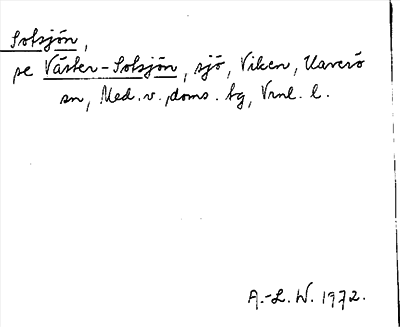 Solsjön,
se Väster-Solsjön, sjö, Viken, Navarö
sn, Med. v. doms. tg, Vrml. l.
A.-L. W. 1972.